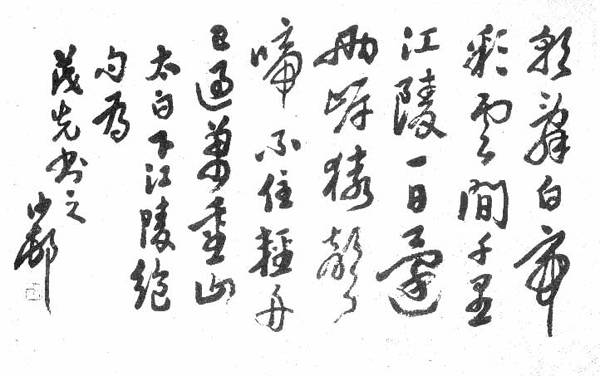 朝辭白帝
彩雲間千里
江陵一日還
兩岸猿聲
啼不住輕舟
已過萬重山
太白下江陵絕
句為
茂先書之
沙邨